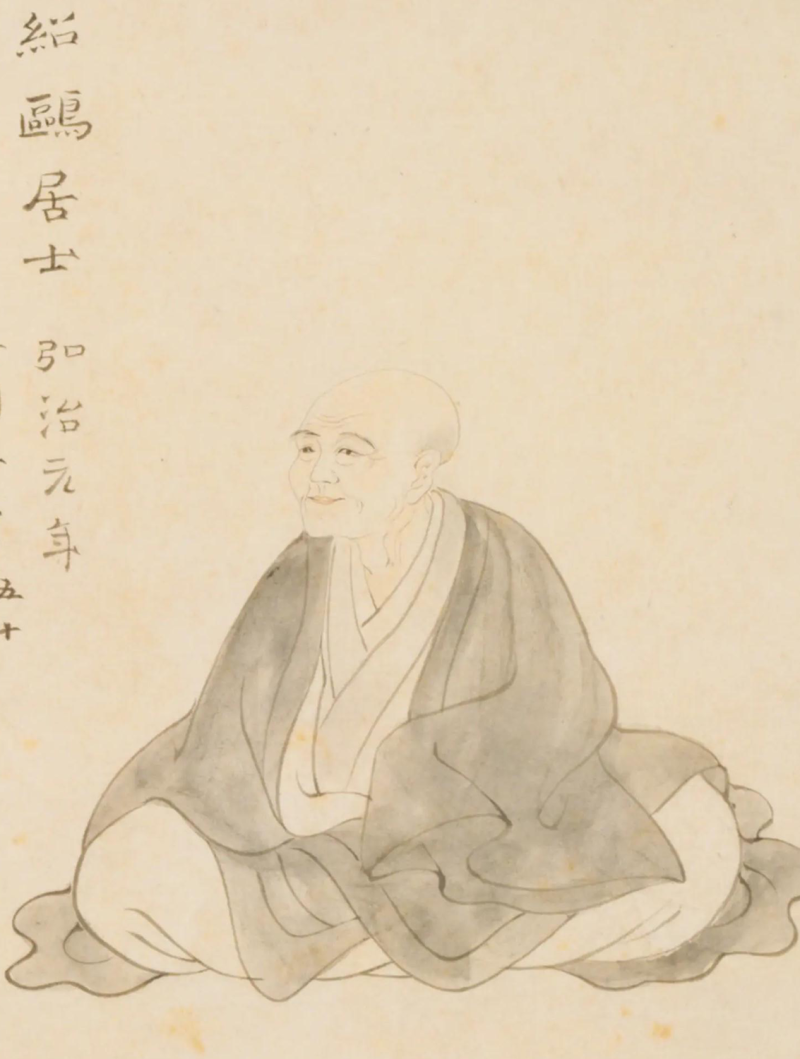 紹鷗居士 弘治元年
五十